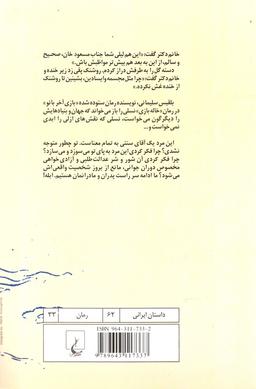 خانم دکتر گفت: «این هم لیلی شما جناب مسعود خان، صحیح
و سالم، از این به بعد هم بیش تر مواظبش باش.»
دسته گل را به طرفش دراز کردم، روشنک پقی زد زیر خنده و
خانم دکتر گفت: «چرا مثل مجسمه وایسادین، بشینین تا روشنک
از خنده غش نکرده.»
بلقیس سلیمانی، نویسنده رمان ستوده شده «بازی آخر بانو»
در رمان «خاله بازی» نسلی را باز می‌کاود که جهان و بنیادهایش
را دیگرگون می‌خواست، نسلی که نقش‌های ازلی را ابدی
نمی‌خواست و...
این مرد یک آقای سنتی به تمام معناست. تو چطور متوجه
نشدی؟ چرا فکر کردی این مرد به پای تو می‌سوزد و می‌سازد؟
چرا فکر کردی آن شور و شر عدالت‌طلبی و آزادی‌خواهی
مخصوص دوران جوانی، مانع از بروز شخصیت واقعی‌اش
می‌شود؟ ما ادامه سر راست پدران و مادرانمان هستیم، ابله!
داستان ایرانی ۶۲ رمان ۳۳
ISBN 964-311-733-2
9 789643 117337